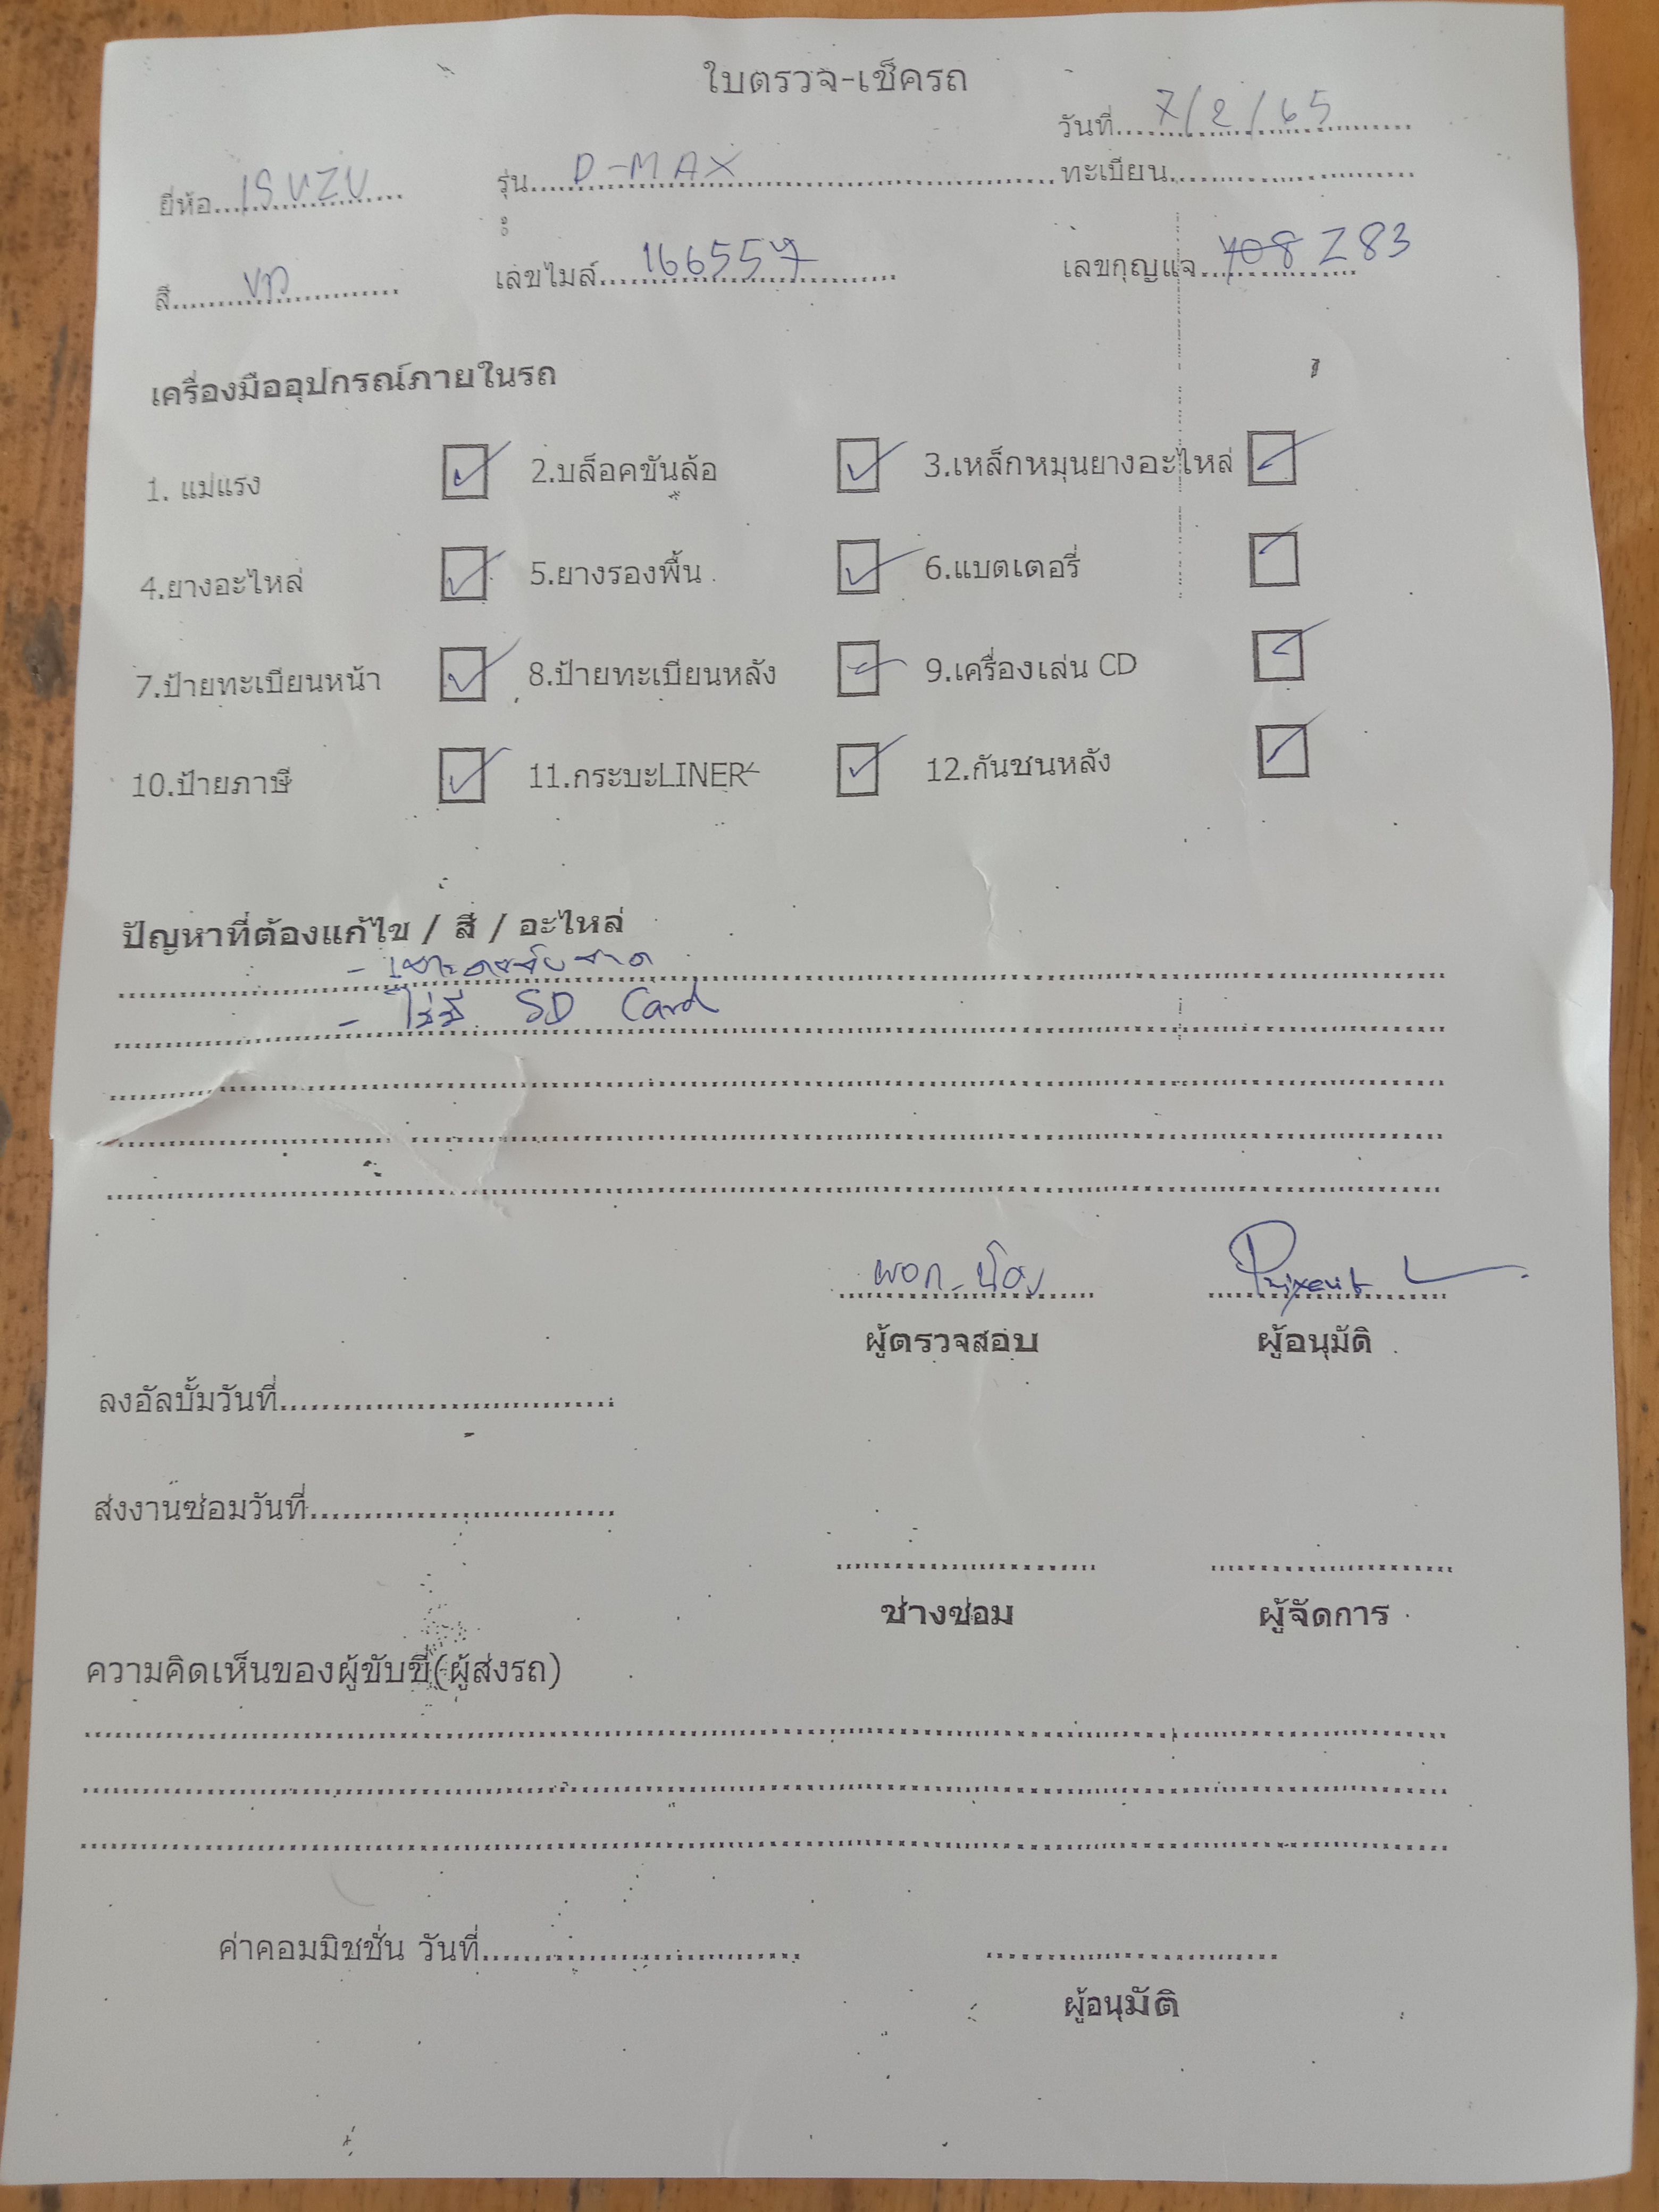 ใบตรวจ-เช็ครถ
วันที่ 7/2/65
ยี่ห้อ ISUZU รุ่น D-MAX ทะเบียน
สี เลขไมล์ 166557 เลขกุญแจ 708 Z83
เครื่องมืออุปกรณ์ภายในรถ
1. แม่แรง ✓ 2.บล็อคขันล้อ ✓ 3.เหล็กหมุนยางอะไหล่ ✓
4.ยางอะไหล่ ✓ 5.ยางรองพื้น ✓ 6.แบตเตอรี่ ✓
7.ป้ายทะเบียนหน้า ✓ 8.ป้ายทะเบียนหลัง ✓ 9.เครื่องเล่น CD ✓
10.ป้ายภาษี ✓ 11.กระบะLINER ✓ 12.กันชนหลัง ✓
ปัญหาที่ต้องแก้ไข / สี / อะไหล่
- เบาะคนขับขาด
- ไม่มี SD Card
ผู้ตรวจสอบ ผู้อนุมัติ
ลงอัลบั้มวันที่
ส่งงานซ่อมวันที่
ช่างซ่อม ผู้จัดการ
ความคิดเห็นของผู้ขับขี่(ผู้ส่งรถ)
ค่าคอมมิชชั่น วันที่
ผู้อนุมัติ